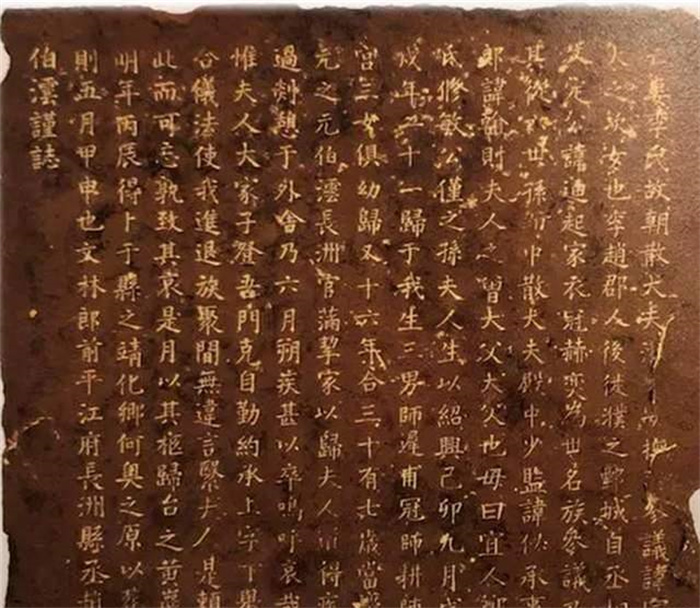 妻李氏故朝散大夫撫參議諱
人之次女也李趙郡人後徙濮之鄄城自丞相
文定公諱迪起家衣冠赫奕為世名族參議
其從六世孫中散大夫殿中少監諱似承
郎諱倫則夫人之曾大父大父也母曰宜人
氏修敏公僅之孫夫人生以紹興己卯九月戊
戌年二十一歸于我生三男師遲甫冠師耕師
宫三女俱幼歸又十六年合三十有七歲當慶
元之元伯澐長洲官滿挈家以歸夫人得疾
過剡憩于外舍乃六月朔疾甚以卒嗚呼哀哉
惟夫人大家子登吾門克自勤約承上字下舉
合儀法使我進退族聚間無違言繄夫人是賴
此而可忘孰致其哀是月以其柩歸台之黃巖
明年丙辰得卜于縣之靖化鄉何奥之原以葬
則五月甲申也文林郎前平江府長洲縣丞趙
伯澐謹誌